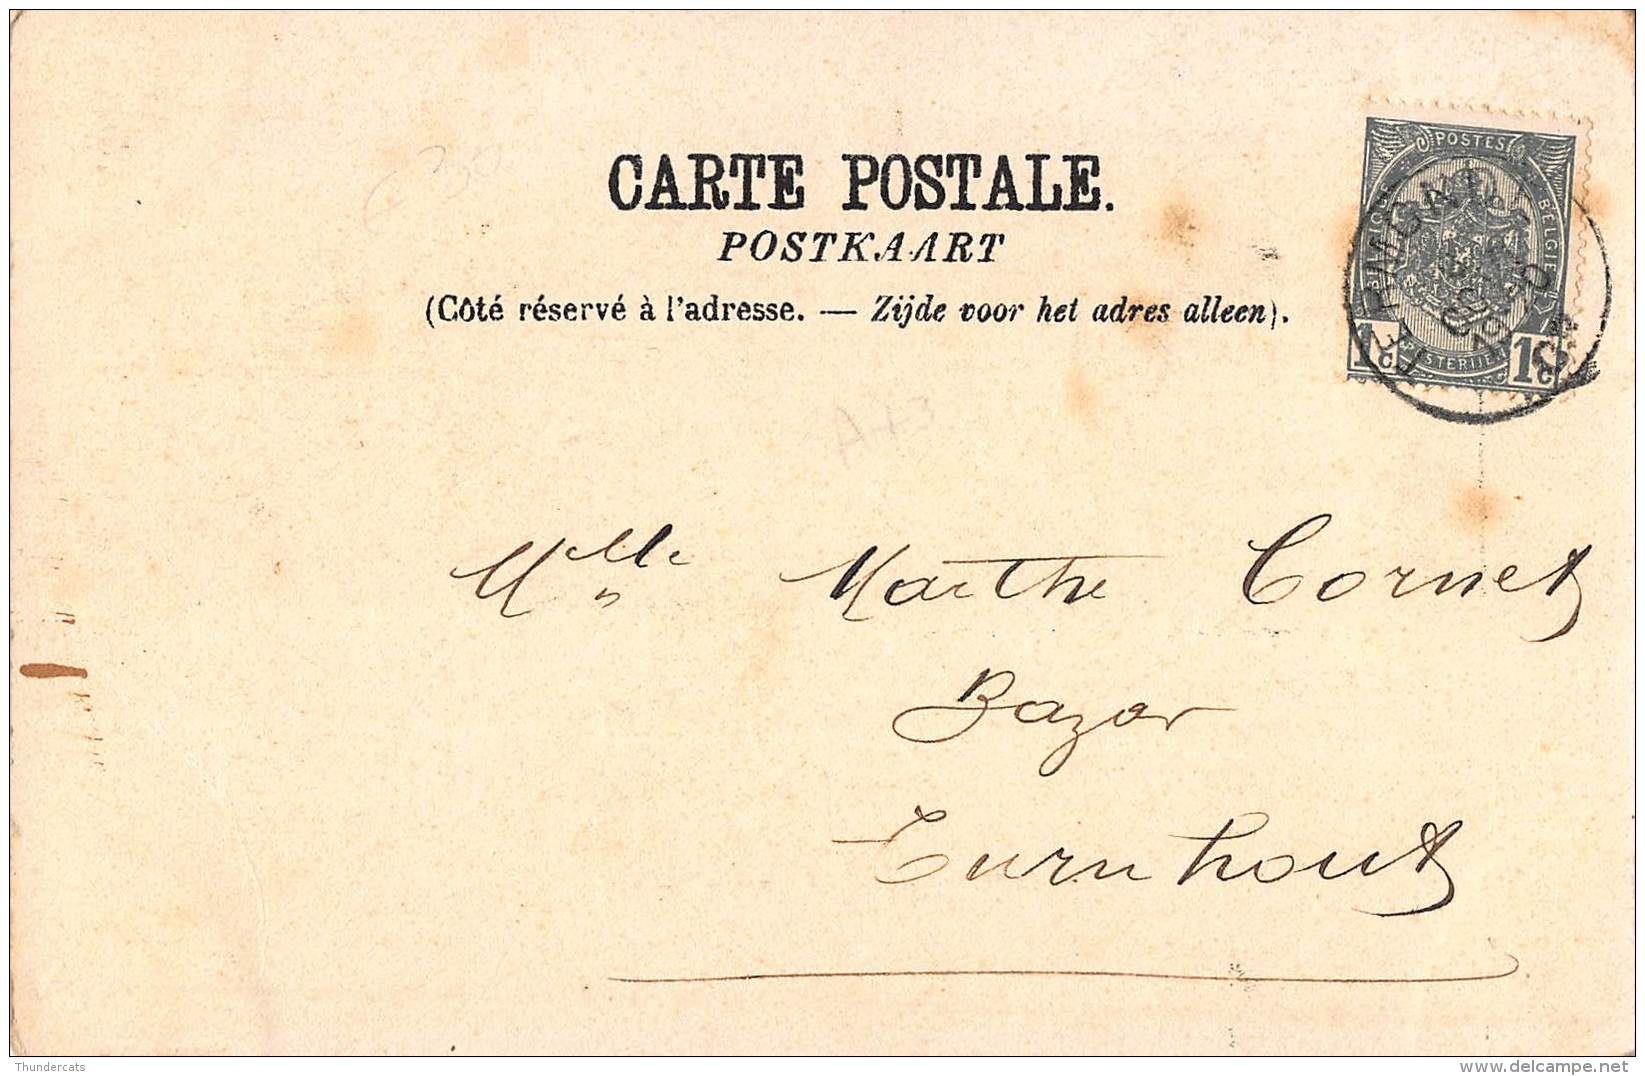 CARTE POSTALE.
POSTKAART
(Côté réservé à l'adresse. — Zijde voor het adres alleen).
POSTES
BELGIQUE
BELGIË
1c 1c
30
A43
Mlle Marthe Cornet
Bazar
Turnhout
Thundercats
www.delcampe.net